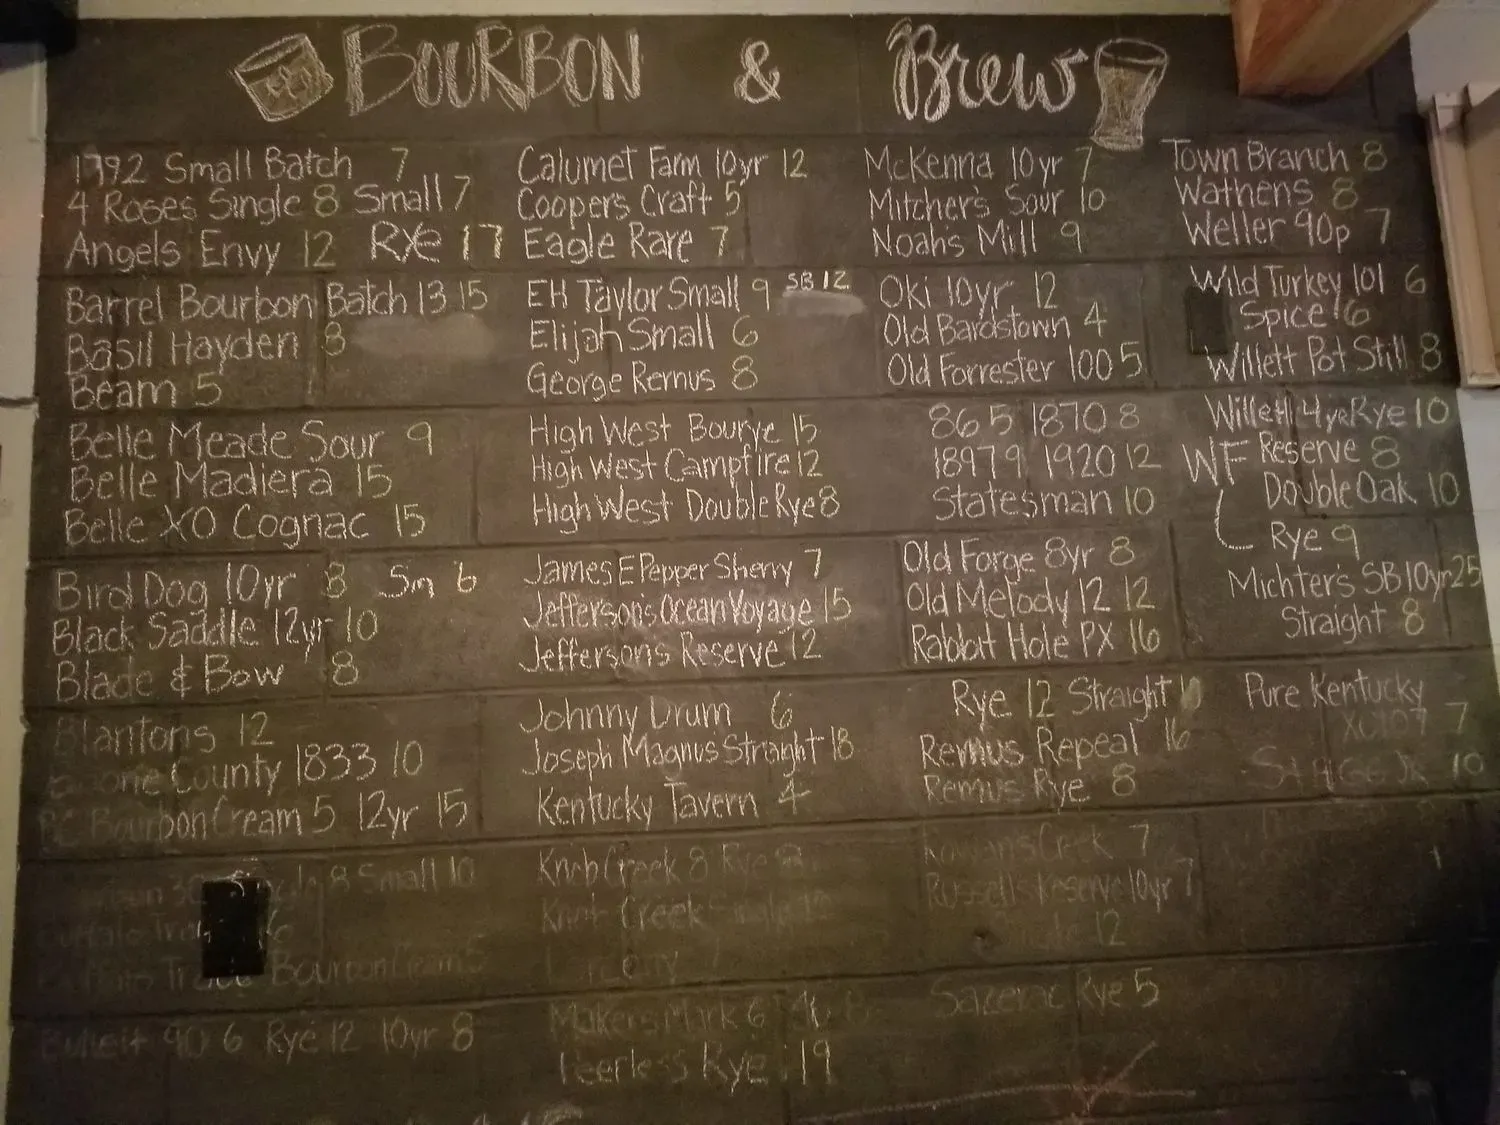 Bourbon & Brew
1792 Small Batch 7
4 Roses Single 8 Small 7
Angels Envy 12 Rye 17
Barrel Bourbon Batch 13 15
Basil Hayden 8
Beam 5
Belle Meade Sour 9
Belle Madiera 15
Belle XO Cognac 15
Bird Dog 10yr 8 Sm 6
Black Saddle 12yr 10
Blade & Bow 8
Blantons 12
County 1833 10
BC Bourbon Cream 5 12yr 15
8 Small 10
Buffalo 6
Buffalo Trace Bourbon Cream 5
Bulleit 90 6 Rye 12 10yr 8
Calumet Farm 10yr 12
Coopers Craft 5
Eagle Rare 7
EH Taylor Small 9 SB 12
Elijah Small 6
George Remus 8
High West Bourye 15
High West Campfire 12
High West Double Rye 8
James E Pepper Sherry 7
Jefferson's Ocean Voyage 15
Jefferson's Reserve 12
Johnny Drum 6
Joseph Magnus Straight 18
Kentucky Tavern 4
Knob Creek 8 Rye
Knob Creek Single 12
Makers Mark 6 46 8
Peerless Rye 19
McKenna 10yr 7
Mitcher's Sour 10
Noah's Mill 9
Oki 10yr 12
Old Bardstown 4
Old Forrester 100 5
86 5 1870 8
1897 9 1920 12
Statesman 10
Old Forge 8yr 8
Old Melody 12 12
Rabbit Hole PX 16
Rye 12 Straight 10
Remus Repeal 16
Remus Rye 8
Rowan's Creek 7
Russell's Reserve 10yr 7
Single 12
Sazerac Rye 5
Town Branch 8
Wathens 8
Weller 90p 7
Wild Turkey 101 6
Spice 6
Willett Pot Still 8
Willett 4yr Rye 10
WF Reserve 8
Double Oak 10
Rye 9
Michter's SB 10yr 25
Straight 8
Pure Kentucky
XO 107 7
Stagg JR 10